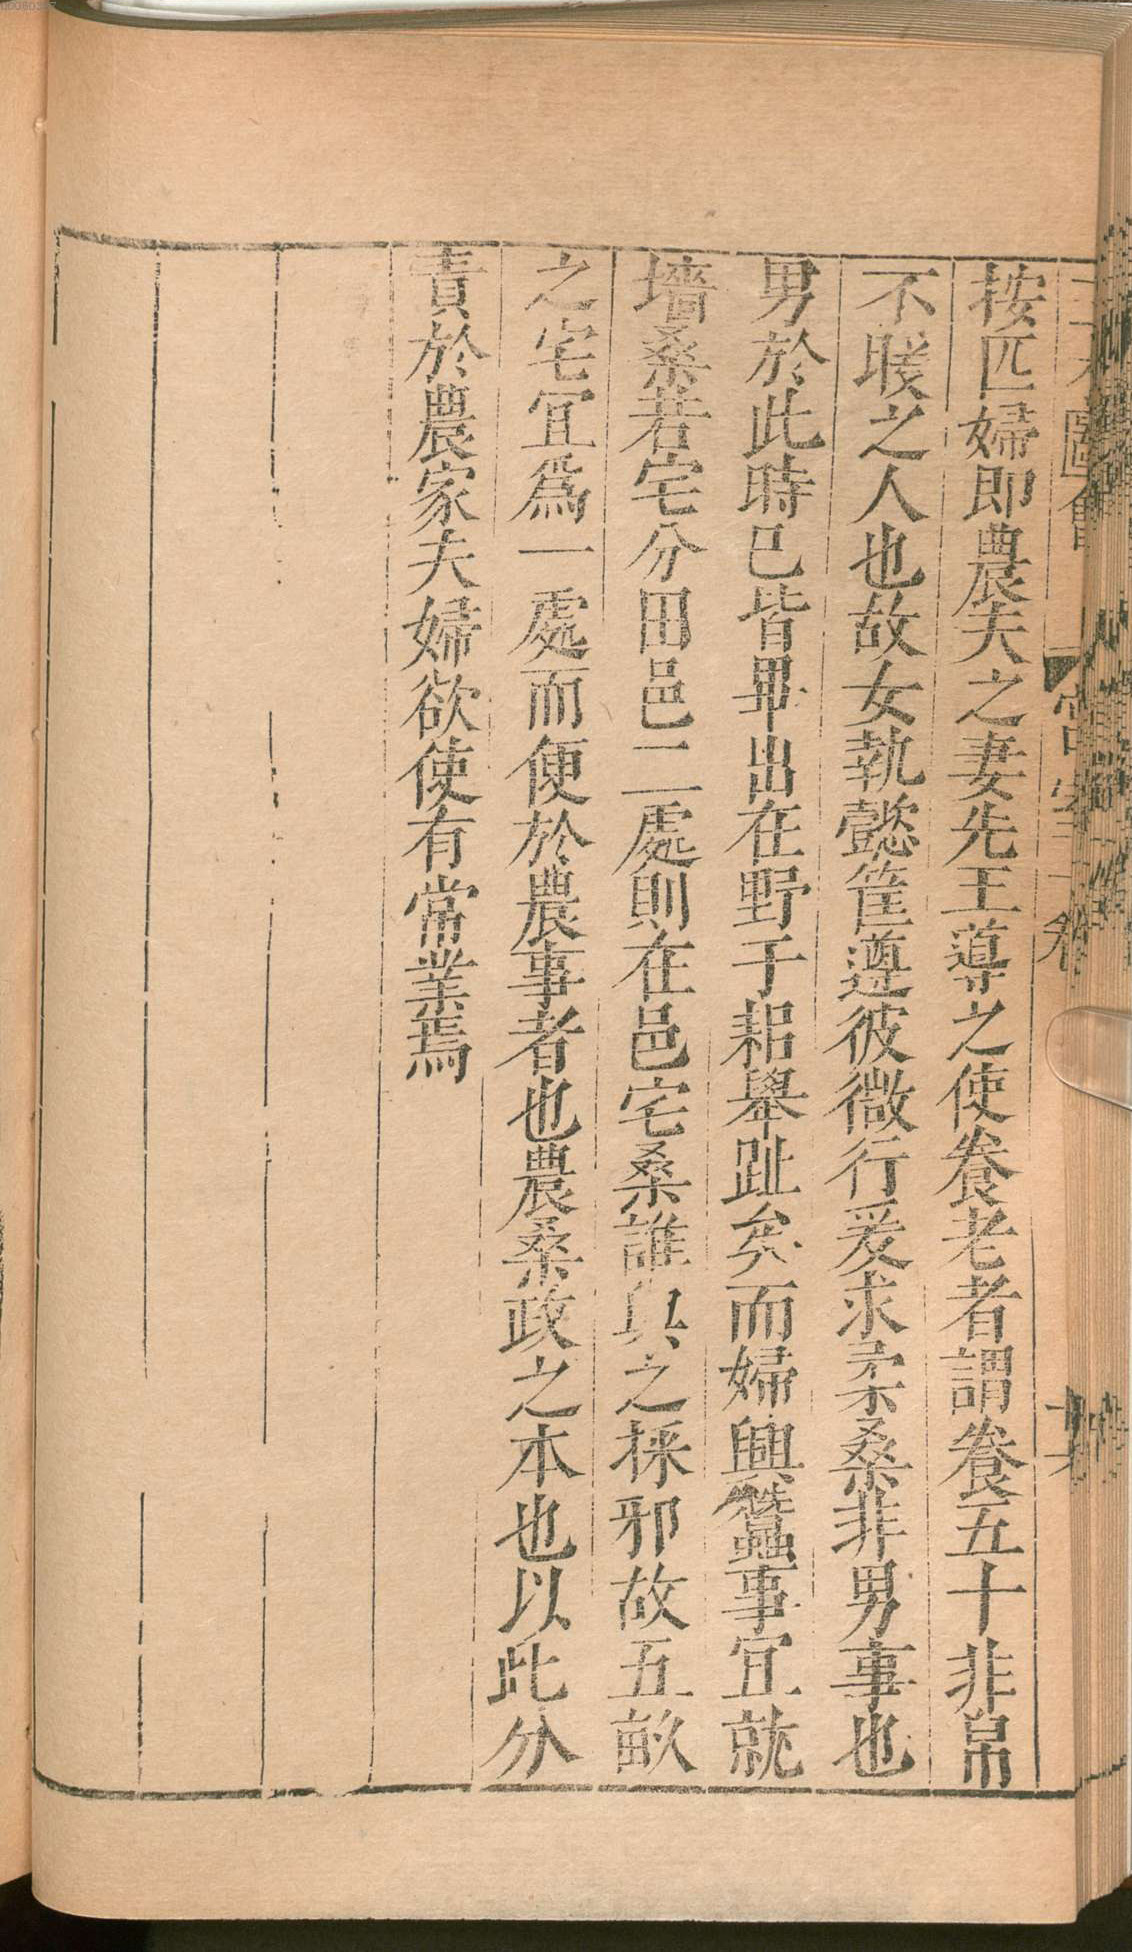 按匹婦即農夫之妻先王導之使飬老者謂飬五十非帛
不暖之人也故女執懿筐遵彼微行爰求柔桑非男事也
男於此時已皆畢出在野于耜舉趾矣而婦興蠶事宜就
墻桑若宅分田邑二處則在邑宅桑誰與之採邪故五畝
之宅宜爲一處而便於農事者也農桑政之本也以此分
責於農家夫婦欲使有常業焉